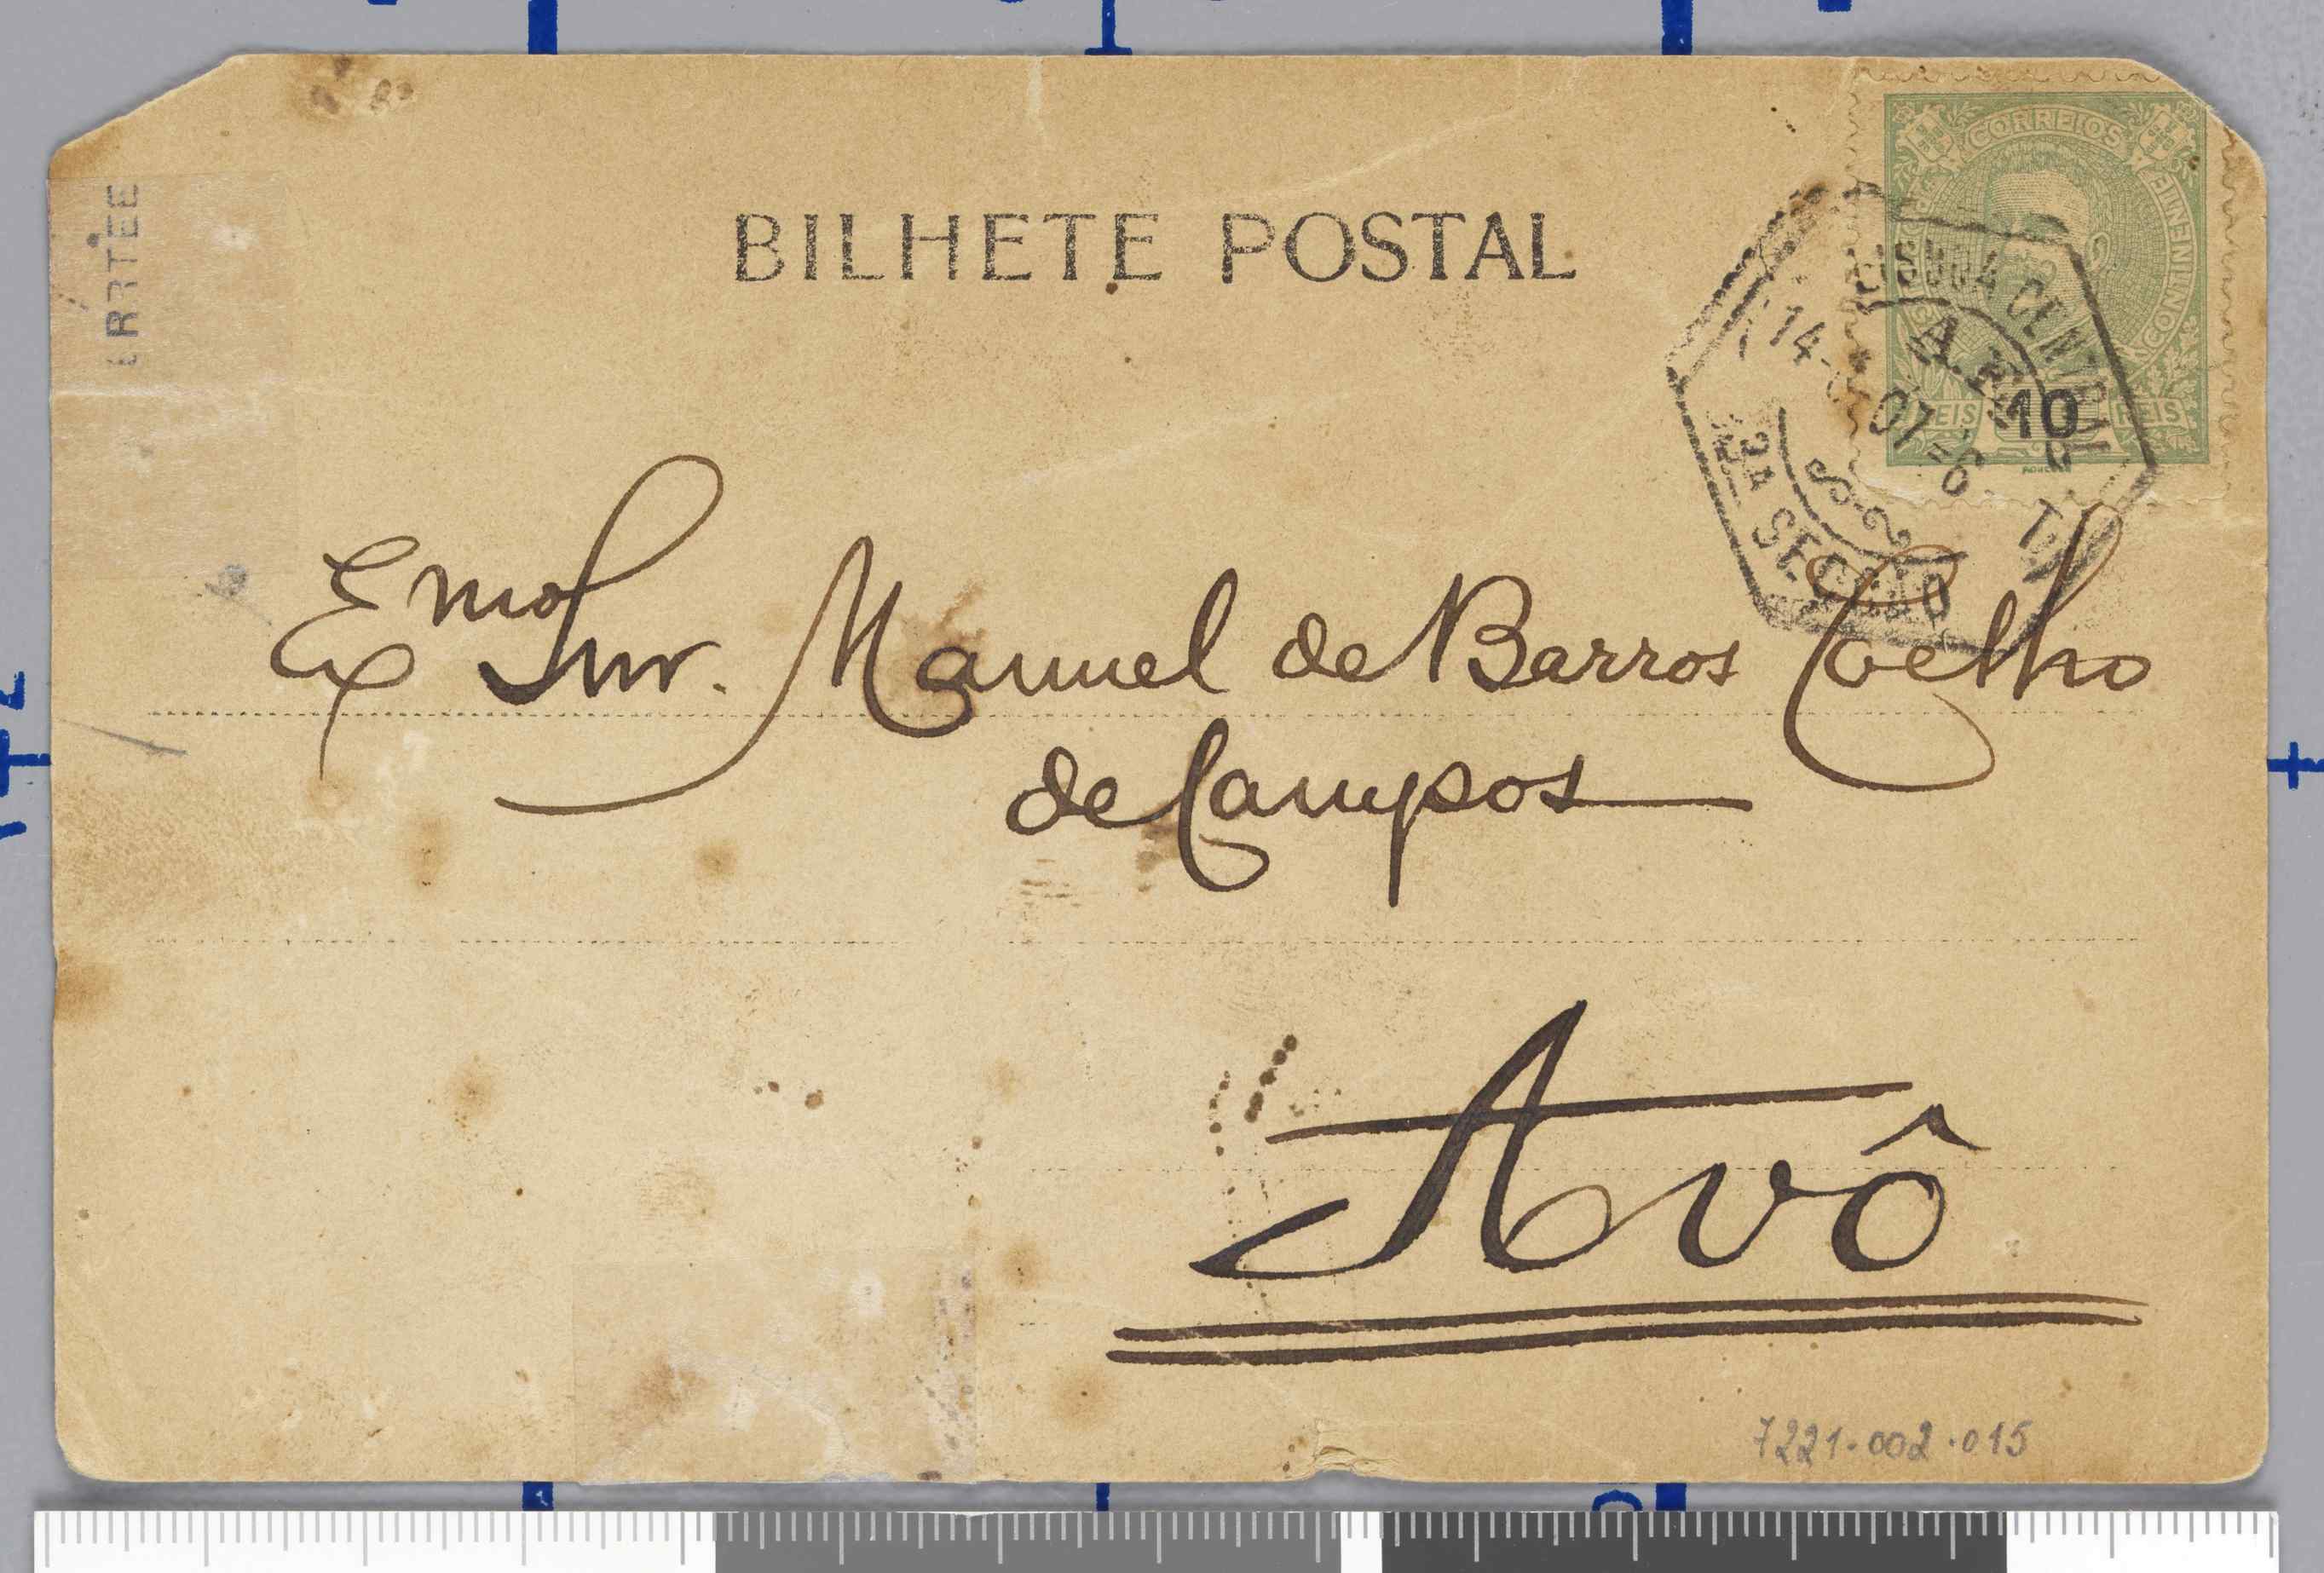 BILHETE POSTAL
CORREIOS
CONTINENTE
REIS 10 REIS
CENTRAL
14
07
3ª SECÇÃO
Exmo Snr. Manuel de Barros Coelho
de Campos
Avô
7221.002.015